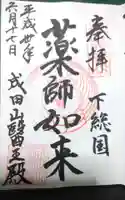 奉拝 下総国
薬師如来
成田山醫王殿
平成卅年
六月十七日